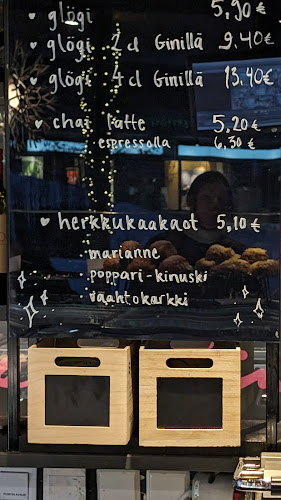 glögi 5,90 €
glögi 2 cl Ginillä 9,40€
glögi 4 cl Ginillä 13,40€
chai latte 5,20€
espressolla 6,30 €
herkkukaakaot 5,10€
· marianne
· poppari-kinuski
· vaahtokarkki